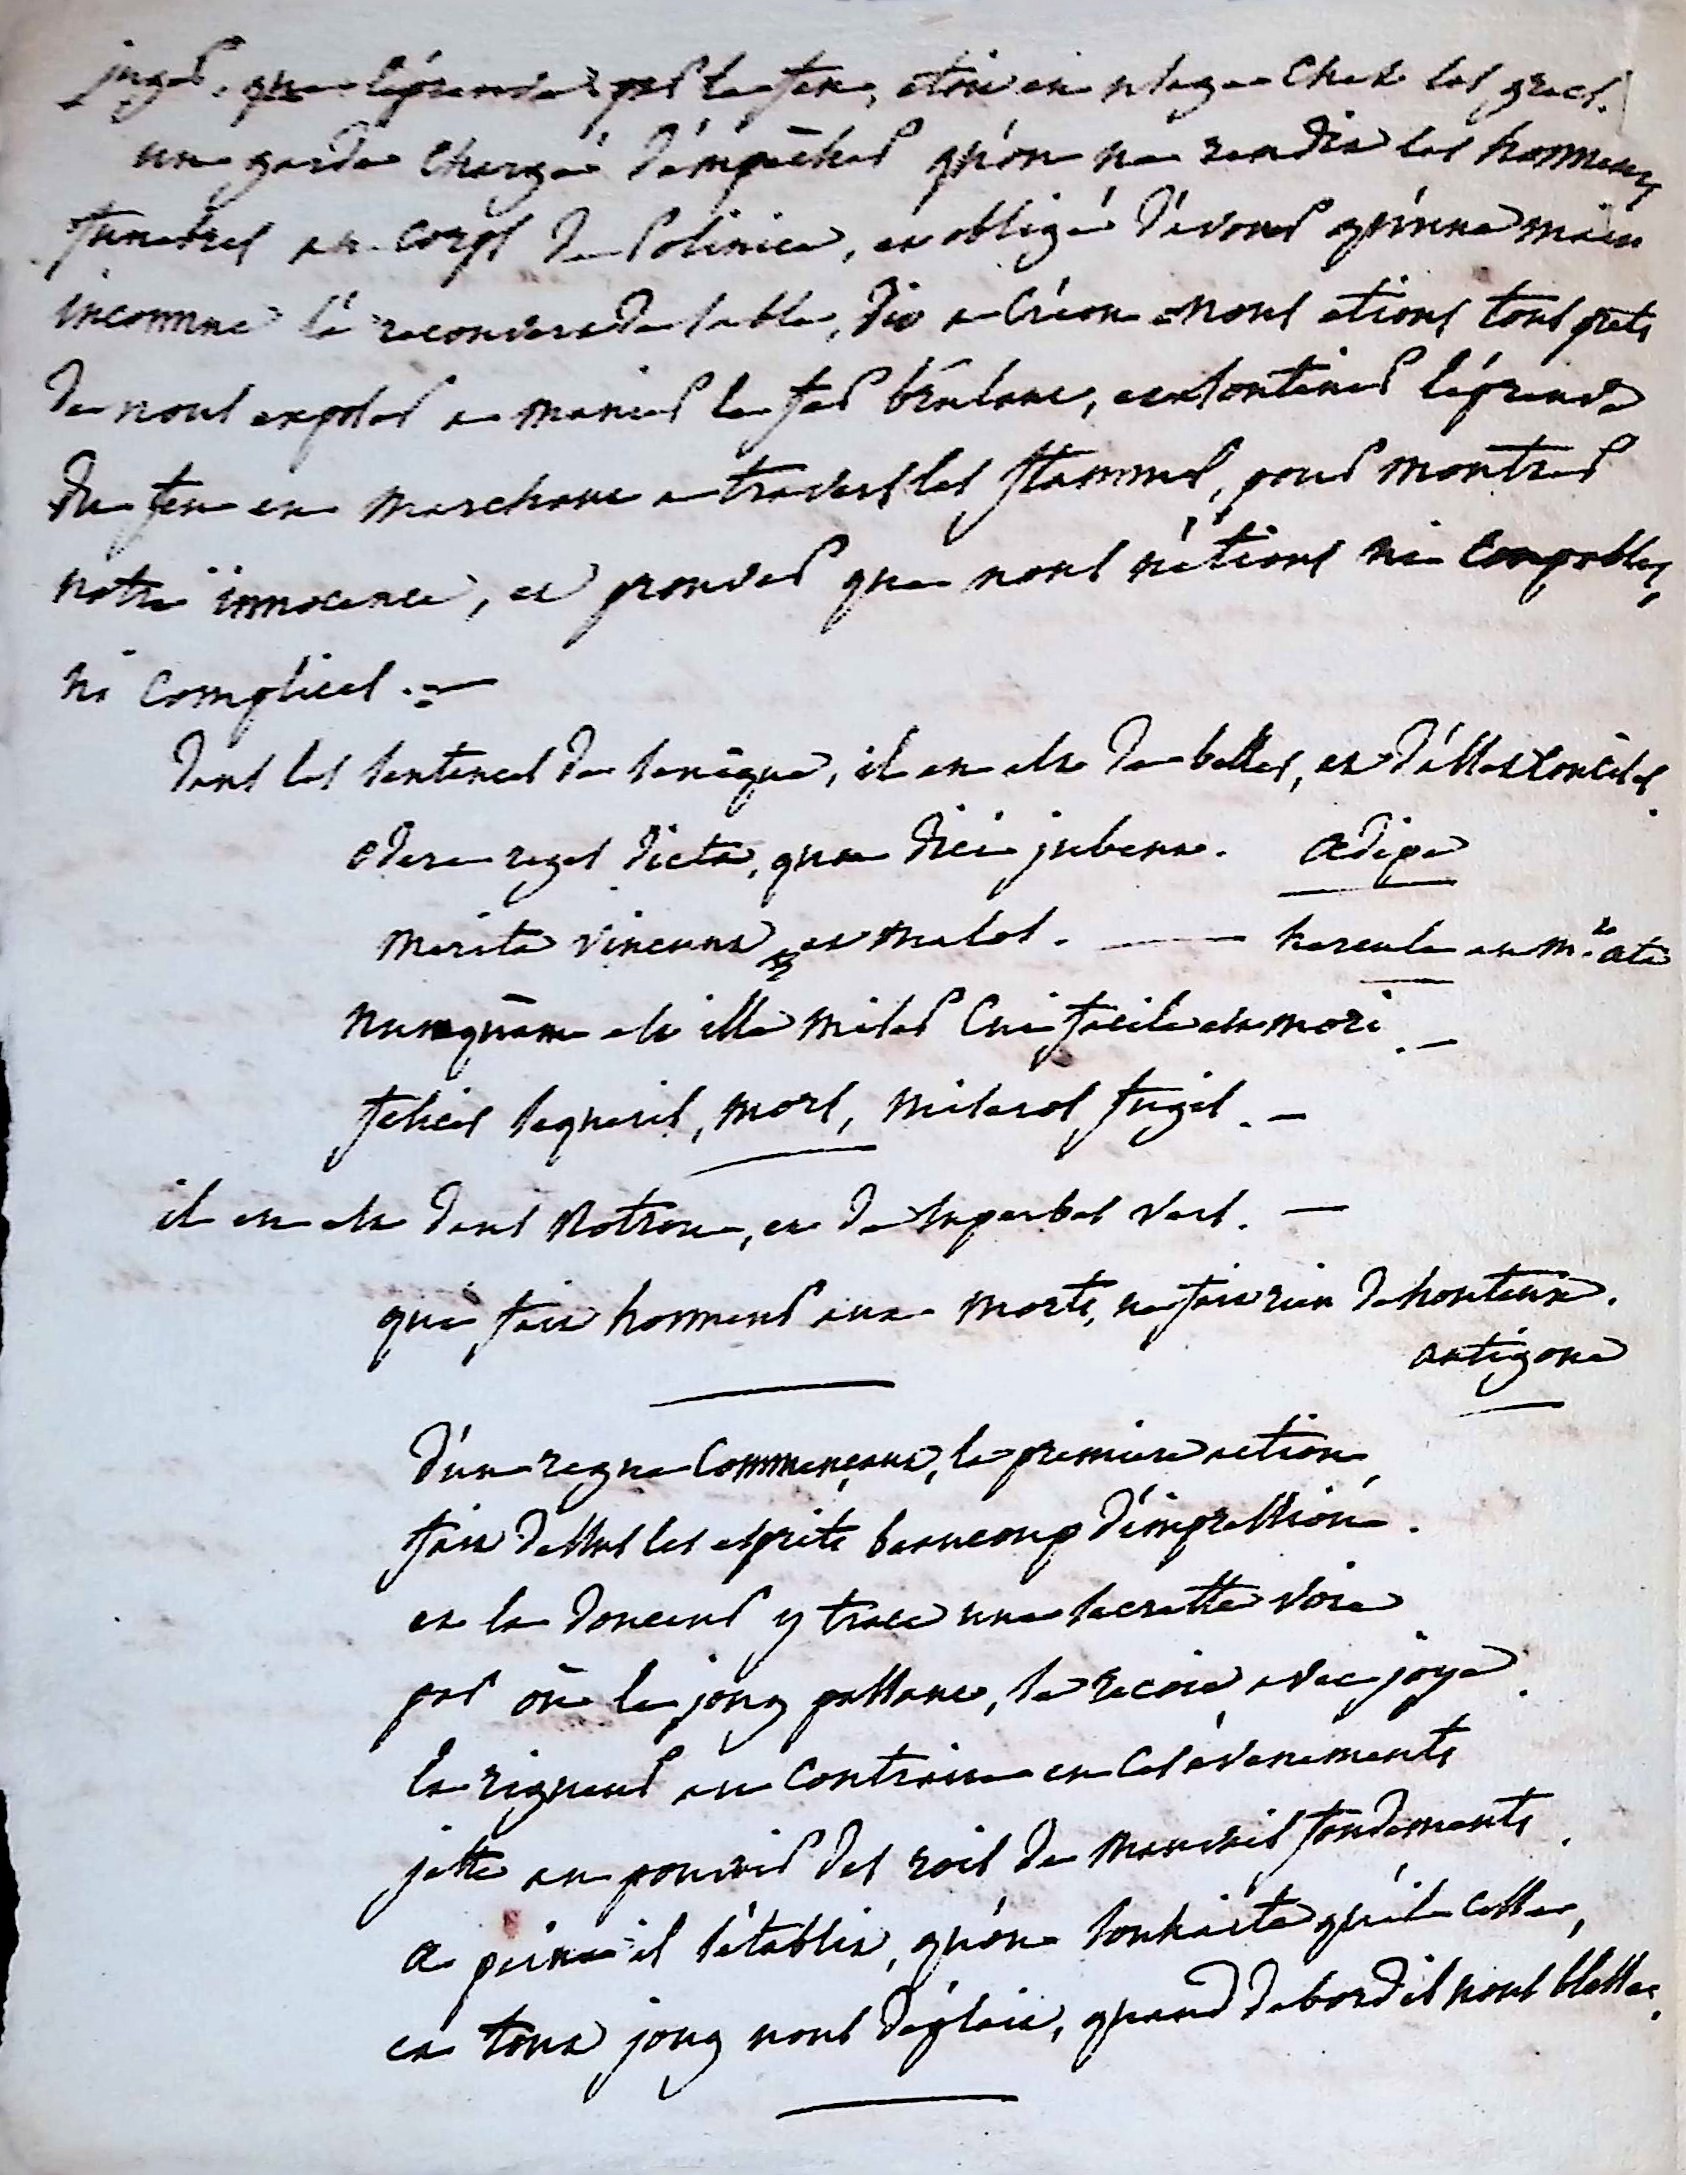 juges, que l'épreuve par le feu, etoit en usage chez les grecs.
un garde chargé d'empêcher qu'on ne rendit les honneurs
funebres au corps de Polinice, et obligé d'avouer qu'une main
inconnue l'a recouvert de sable, dit a Créon nous etions tous prets
de nous exposer a manier le fer brulant, et a soutenir l'épreuve
du feu en marchant a travers les flammes, pour montrer
notre innocence, et prouver que nous n'étions ni coupables,
ni complices. —
dans les sentences de seneque, il en est de belles, et d'assez concises.
odere reges dicta, quae dici jubent. Œdipe
merita vincunt et malos. — hercule au m.t Œta
numquam est ille miser cui facile est mori. —
felices sequeris, mors, miseros fugis. —
il en est dans Rotrou, et de superbes vers. —
qui fait honneur aux morts, ne fait rien de honteux.
antigone
d'un regne commençant, la premiere action,
fait dessus les esprits beaucoup d'impression.
et la douceur y trace une secrette voie
par où le joug passant, se recoit avec joye.
la rigueur au contraire en ces évenements
jette au pouvoir des rois de mauvais fondements.
a peine il s'établit, qu'on souhaite qu'il cesse,
et tout joug nous déplait, quand dabord il nous blesse.